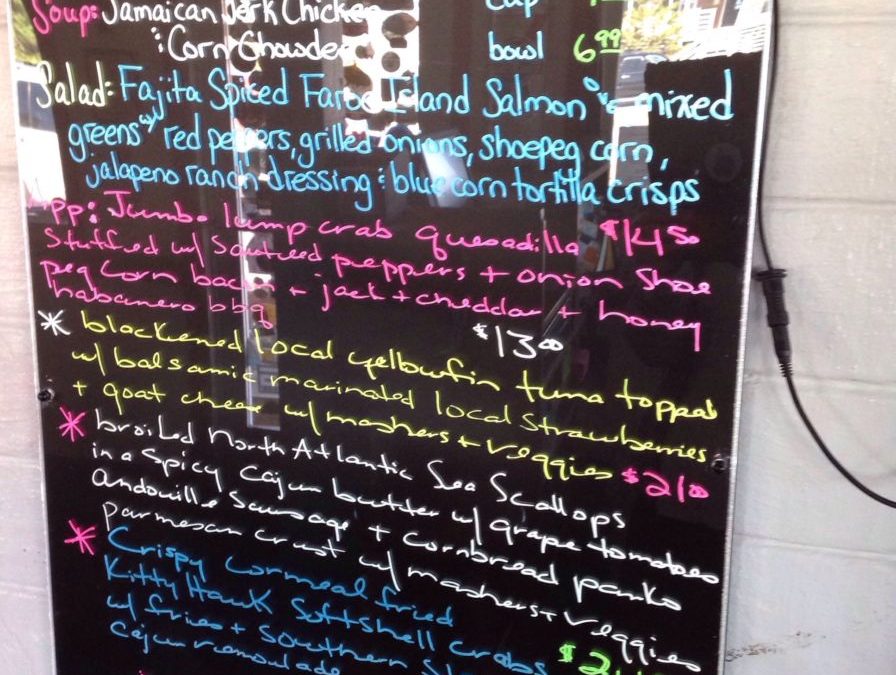 Soup: Jamaican Jerk Chicken cup
: Corn Chowder bowl 6.99
Salad: Fajita Spiced Faroe Island Salmon mixed
greens w/ red peppers, grilled onions, shoepeg corn,
jalapeno ranch dressing & blue corn tortilla crisps
pp: Jumbo lump crab quesadilla $14.50
Stuffed w/ Sauteed peppers + onion Shoe
peg corn bacon + jack + cheddar + honey
habanero bbq $13.00
* blackened local yellowfin tuna topped
w/ balsamic marinated local Strawberries
+ goat cheese w/ mashers + veggies $21.00
* broiled North Atlantic Sea Scallops
in a Spicy Cajun butter w/ grape tomatoes
andouille Sausage + Cornbread panko
parmesan crust w/ mashers + veggies
* Crispy Cornmeal fried
Kitty Hawk Softshell Crabs
w/ fries + Southern
Cajun remoulade